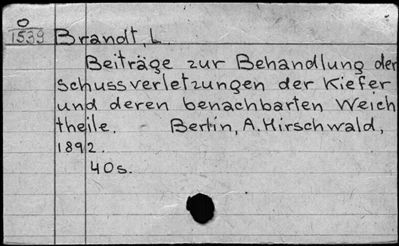 O
1539 Brandt, L.
Beiträge zur Behandlung der
schussverletzungen der Kiefer
und deren benachbarten Weich
theile. Berlin, A. Hirschwald,
1892.
40s.